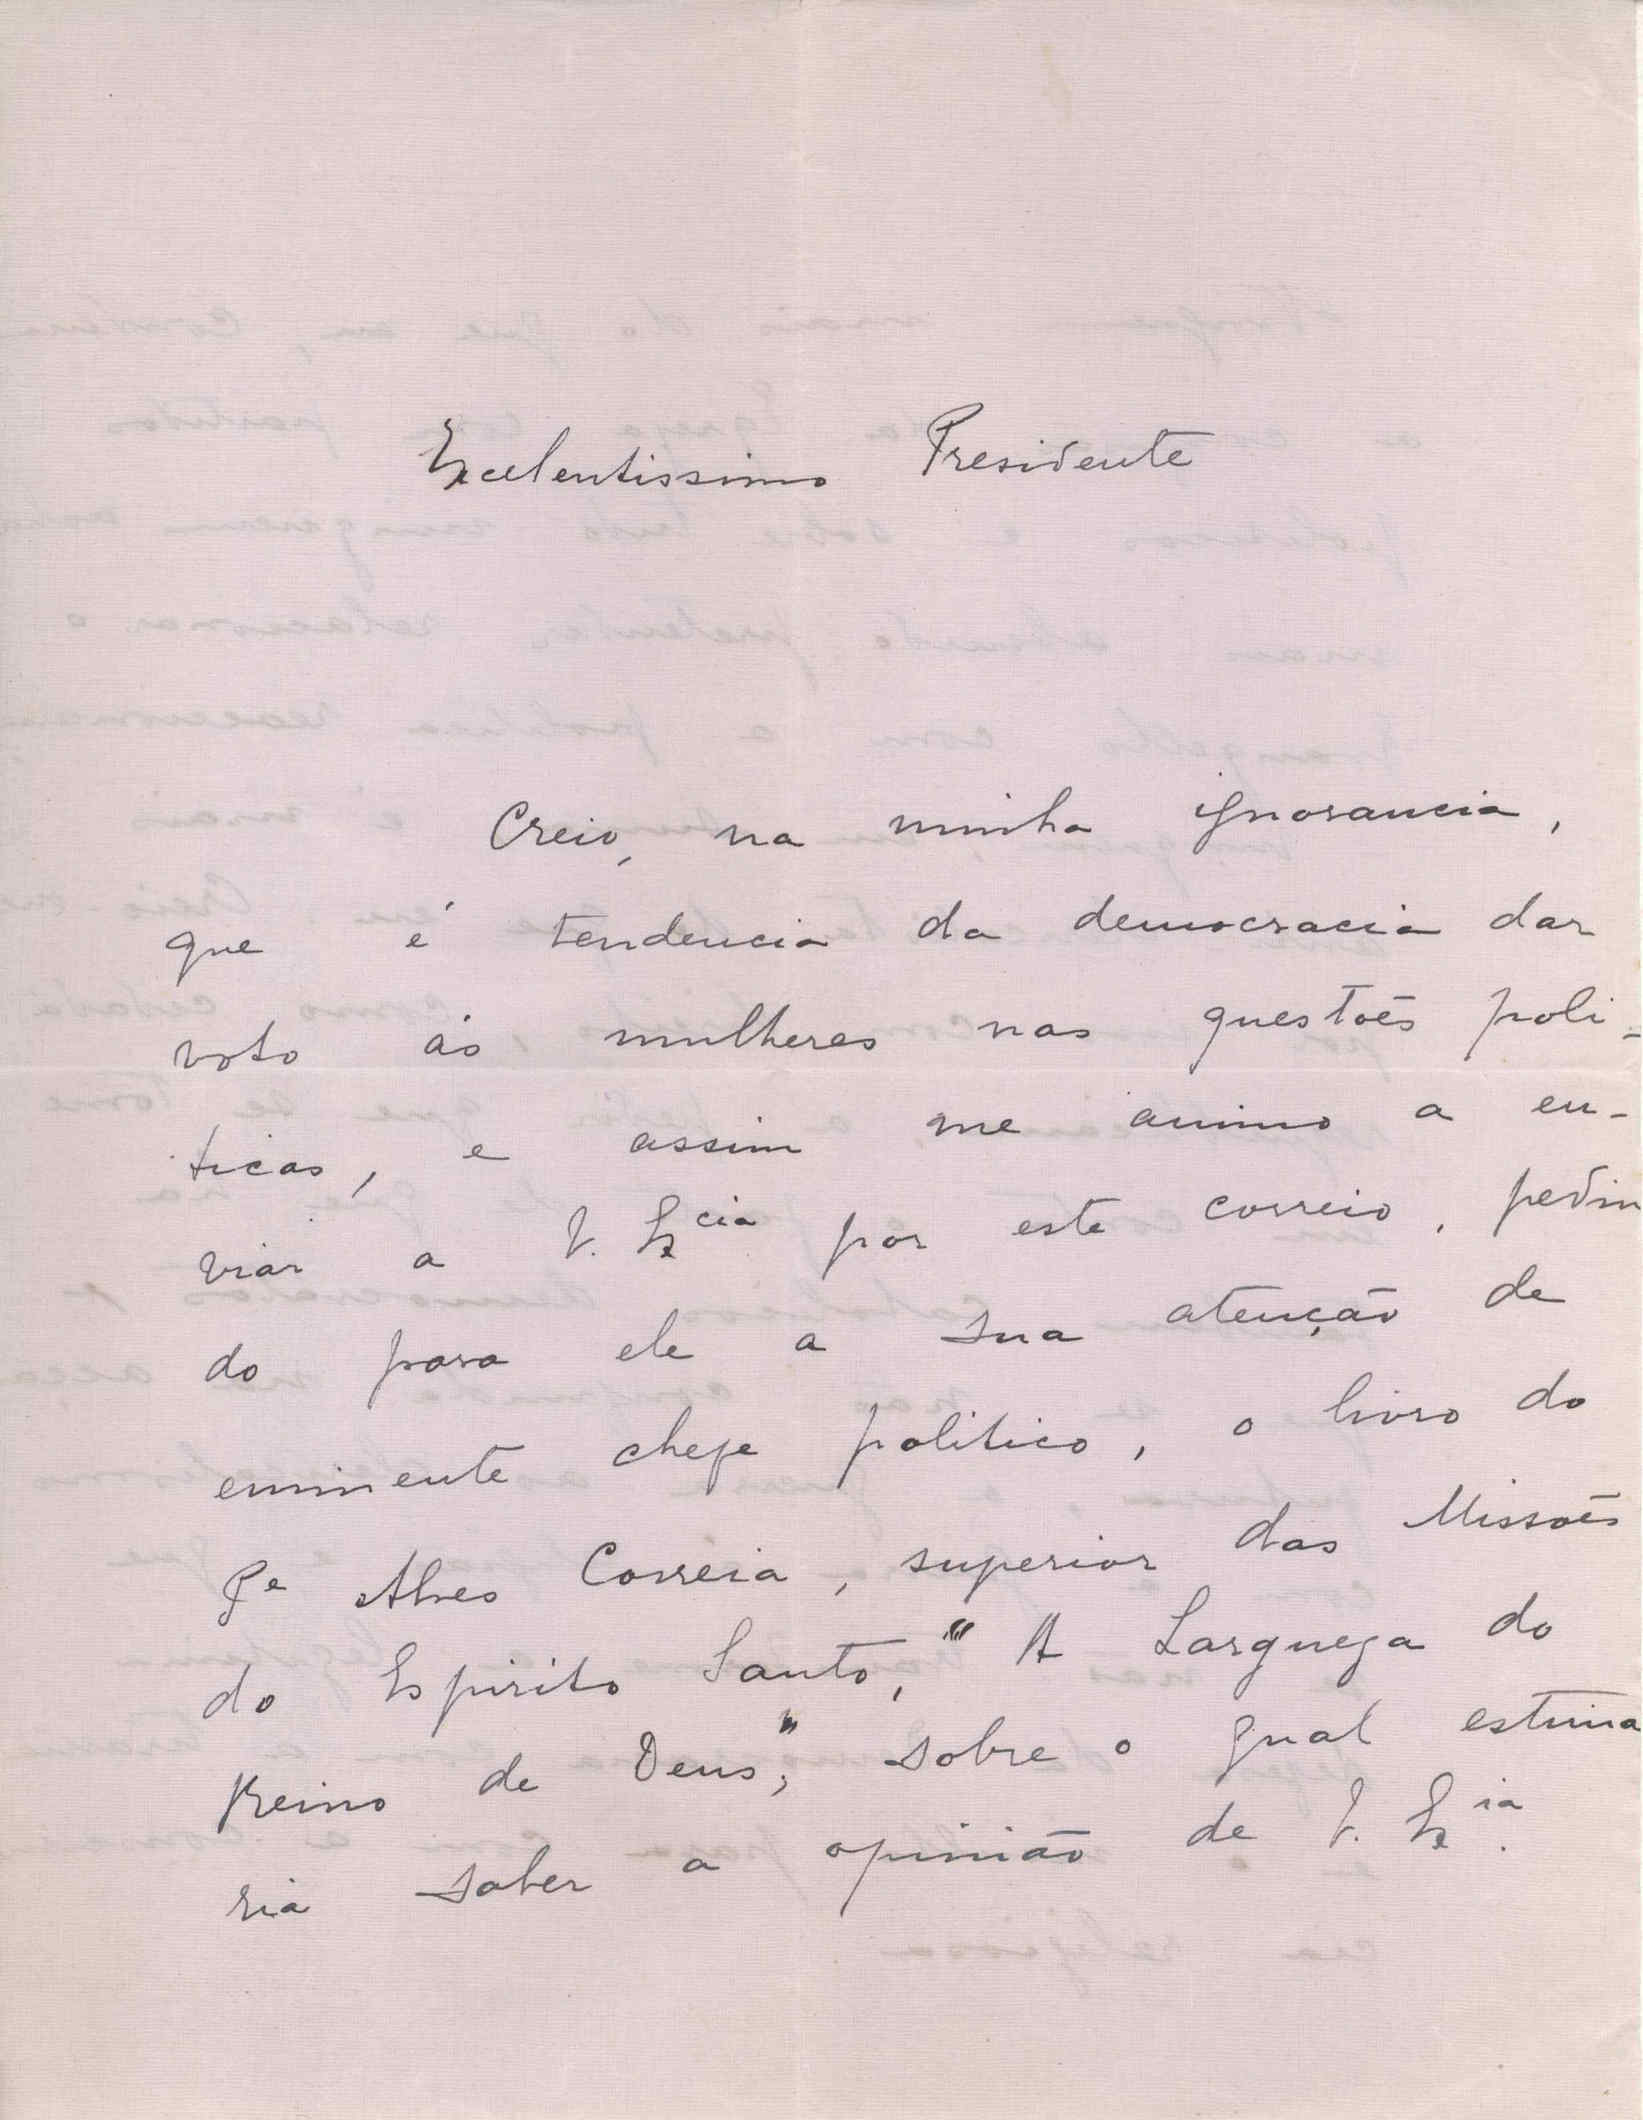 Excelentissimo Presidente
Creio, na minha ignorancia,
que é tendencia da democracia dar
voto ás mulheres nas questões poli-
ticas, e assim me animo a en-
viar a V. Ex^cia por este correio, pedin
do para ele a sua atenção de
eminente chefe politico, o livro do
P^e Alves Correia, superior das Missões
do Espirito Santo, "A Largueza do
Reino de Deus", sobre o qual estima
ria saber a opinião de V. Ex^ia.